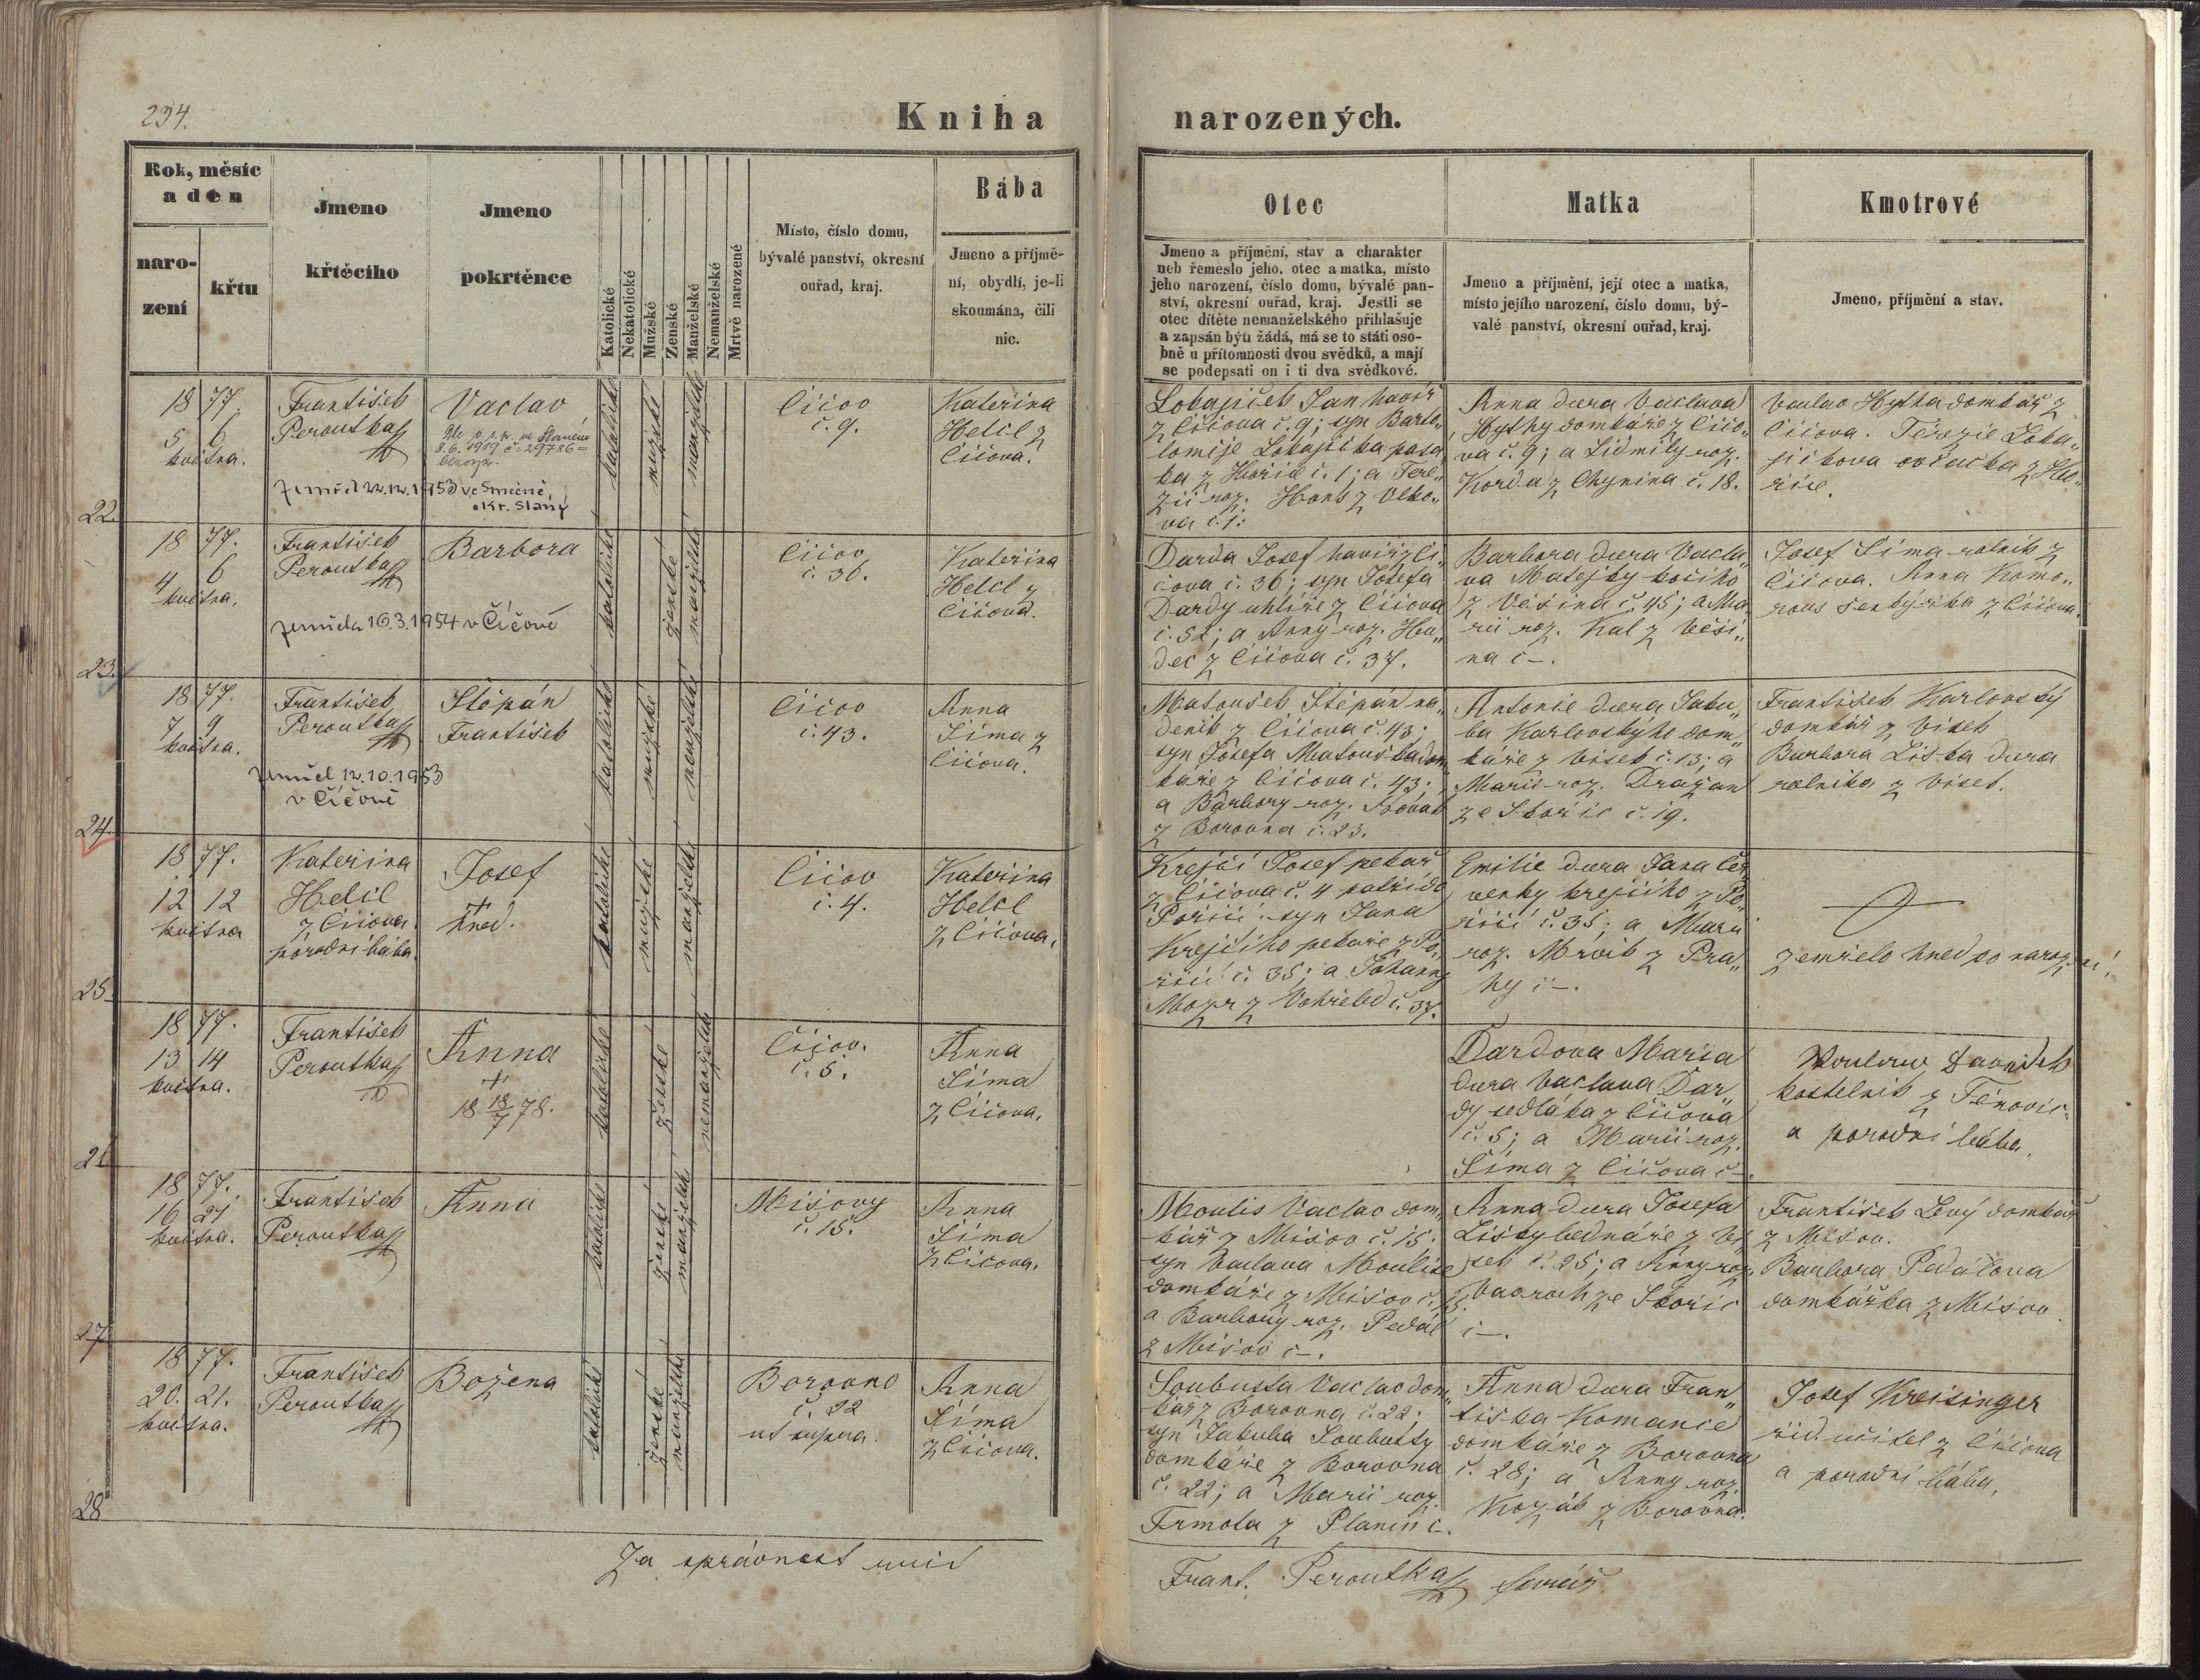 234.
Kniha narozených.
Rok, měsíc
a den
naro-
zení
křtu
Jmeno
křtěcího
Jmeno
pokrtěnce
Katolické
Nekatolické
Mužské
Ženské
Manželské
Nemanželské
Mrtvě narozené
Místo, číslo domu,
bývalé panství, okresní
ouřad, kraj.
Bába
Jmeno a příjmě-
ní, obydlí, je-li
skoumána, čili
nic.
Otec
Jmeno a příjmění, stav a charakter
neb řemeslo jeho, otec a matka, místo
jeho narození, číslo domu, bývalé pan-
ství, okresní ouřad, kraj. Jestli se
otec dítěte nemanželského přihlašuje
a zapsán býti žádá, má se to státi oso-
bně u přítomnosti dvou svědků, a mají
se podepsati on i ti dva svědkové.
Matka
Jmeno a příjmění, její otec a matka,
místo jejího narození, číslo domu, bý-
valé panství, okresní ouřad, kraj.
Kmotrové
Jmeno, příjmění a stav.
22
18 77.
5 6
května.
František
Peroutka
Vaclav
8.6.1919 č. 29786
zemřel 22.12.1953 ve Smečně,
okr. Slaný
katolické
mužské
manželské
Čičov
č. 9.
Kateřina
Helcl z
Čičova.
Lokajíček Jan havíř
z Čičova č. 9; syn Barto„
loměje Lokajíčka pasa„
ka z Hořic č. 1; a Tere„
zii roz. Hons z Vlko„
va č. 1.
Anna dcera Vaclava
Hythy domkáře z Čičo„
va č. 9; a Lidmily roz.
Korda z Chynina č. 18.
Vaclav Hytha domkář z
Čičova. Terezie Loka„
jíčkova ovčačka z Ho„
řic.
23.
18 77.
4 6
května.
František
Peroutka
Barbora
zemřela 16.3.1954 v Čičově
katolické
ženské
manželské
Čičov
č. 36.
Kateřina
Helcl z
Čičova.
Darda Josef havíř z Či„
čova č. 36; syn Josefa
Dardy uhlíře z Čičova
č. 52; a Anny roz. Hu„
dec z Čičova č. 37.
Barbora dcera Vacla„
va Matejky kočího
z Včšína č. 45; a Ma„
rii roz. Kal z Včší„
na č –.
Josef Šima rolník z
Čičova. Anna Komo„
rous šenkýřka z Čičova.
24
18 77.
7 9
května.
František
Peroutka
Štěpán
František
zemřel 12.10.1953
v Čičově
katolické
mužské
manželské
Čičov
č. 43.
Anna
Šíma z
Čičova.
Matoušek Štěpán ná„
deník z Čičova č. 43;
syn Josefa Matouška dom„
káře z Čičova č. 43;
a Barbory roz. Novák
z Borovna č. 23.
Antonie dcera Jaku„
ba Karlovskýho dom„
káře z Vísek č. 13; a
Marii roz. Dražan
ze Skořic č. 19.
František Karlovský
domkář z Vísek
Barbora Liška dcera
rolníka z Vísek.
25
18 77.
12 12
května
Kateřina
Helcl
z Čičova
porodní bába.
Josef
† hned.
katolické
mužské
manželské
Čičov
č. 4.
Kateřina
Helcl
z Čičova.
Krejčí Josef pekař
z Čičova č. 4 patří do
Poříčí: syn Jana
Krejčího pekaře z Po„
říčí č. 35; a Johanny
Mozr z Vohřeled č. 37.
Emilie dcera Jana Čer„
venky krejčího z Po„
říčí č. 35; a Marii
roz. Mrvík z Pra„
hy č –.
zemřelo hned po narození!
26
18 77.
13 14
května.
František
Peroutka
Anna
†
18 18/7 78.
katolické
ženské
nemanželské
Čičov.
č. 5.
Anna
Šíma
z Čičova.
Dardova Maria
dcera Vaclava Dar„
dy sedláka z Čičova
č. 5; a Marii roz.
Šíma z Čičova č –.
kostelník z Těnovic
a porodní bába.
27
18 77.
16 21
května.
František
Peroutka
Anna
katolické
ženské
manželské
Mišovy
č. 15.
Anna
Šíma
z Čičova.
Moulis Vaclav dom„
kář z Mišov č. 15.
syn Vaclava Moulise
domkáře z Mišov č. 15.
a Barbory roz. Pedál
z Mišov č –.
Anna dcera Josefa
Lišky bednáře z Ví„
sek č. 25; a Anny roz.
Vavroch ze Skořic
č –.
František Levý domkář
z Mišov.
Barbora Pedálova
domkářka z Mišov.
28
18 77.
20. 21.
května.
František
Peroutka
Božena
katolické
ženské
manželské
Borovno
č. 22
Anna
Šíma
z Čičova.
Soubusta Vaclav dom„
kář z Borovna č. 22;
syn Jakuba Soubusty
domkáře z Borovna
č. 22; a Marii roz.
Trmota z Planin č –.
Anna dcera Fran„
tiška Komance
domkáře z Borovna
č. 28; a Anny roz.
Kozák z Borovna.
Josef Kreisinger
říd. učitel z Čičova
a porodní bába.
Za správnost ručí
Frant. Peroutka farář.